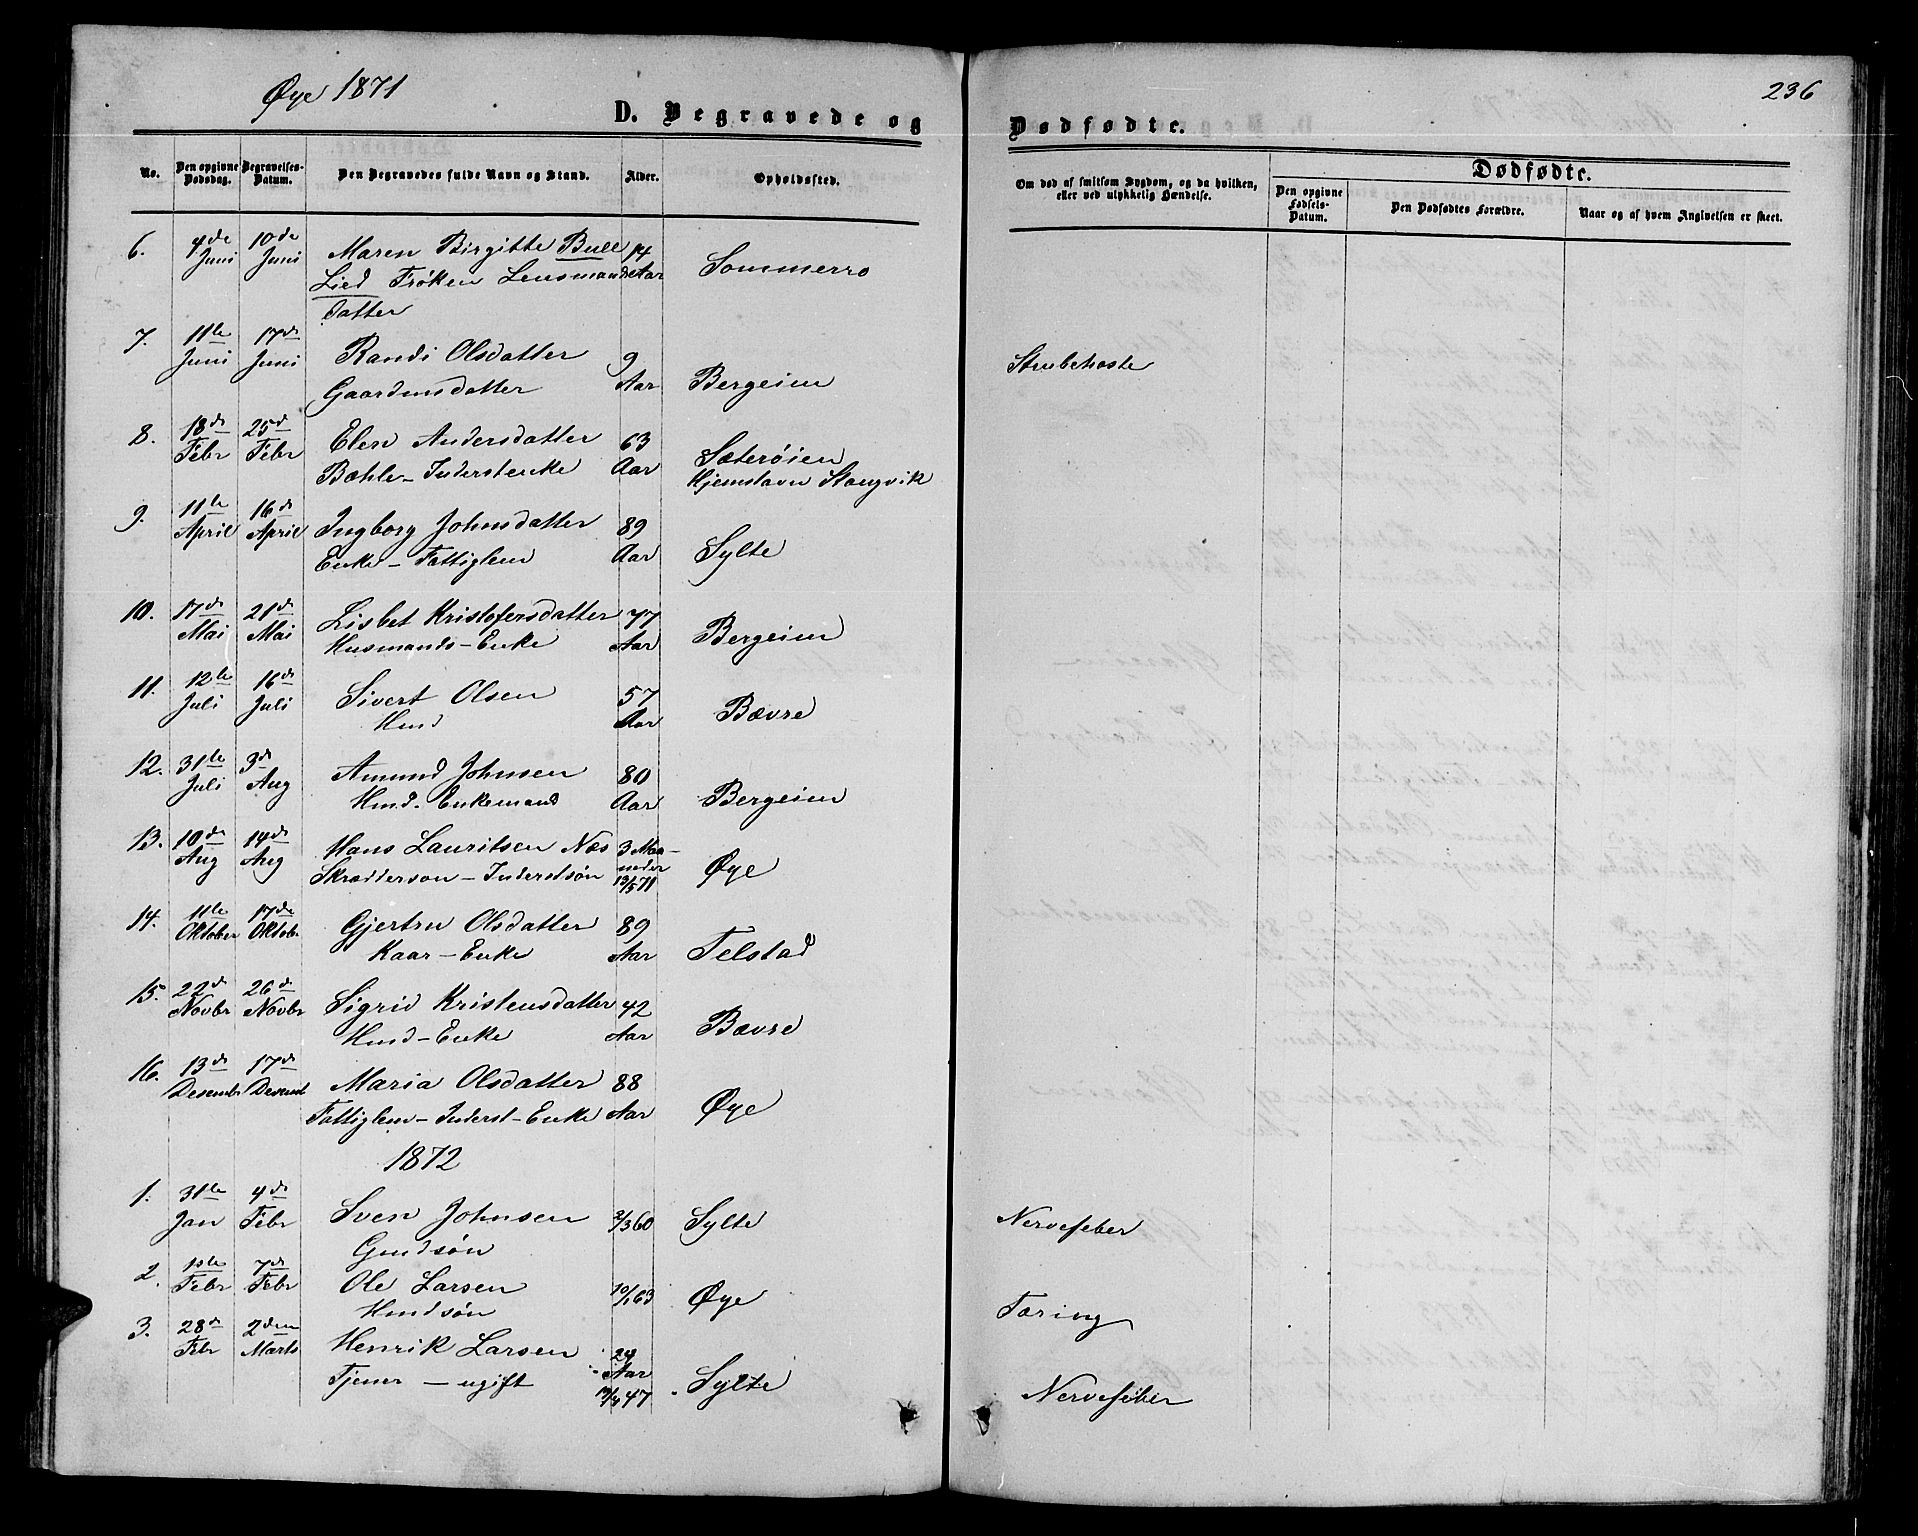 Øye 1871
236
D. Begravede og Dødfødte.
No.
Den opgivne Dødsdag.
Begravelses-Datum.
Den Begravedes fulde Navn og Stand.
Alder.
Opholdssted.
Om død af smitsom Sygdom, og da hvilken, eller ved ulykkelig Hændelse.
Dødfødte.
Den opgivne Fødsels-Datum.
Den Dødfødtes Forældre.
Naar og af hvem Angivelsen er skeet.
6. 4de 10de Maren Birgitte Bull 14
Juni Juni Lied Frøken Lensmands Aar Sommerro
Datter
7. 11te 17de Randi Olsdatter 9
Juni Juni Gaardmsdatter Aar Bergeim Strubehoste
8. 18de 25de Elen Andersdatter 63 Sæterøien
Febr Febr Bæhle - Inderstenke Aar Hjemstavn Stangvik
9. 11te 16de Ingborg Johnsdatter 89
April April Enke - Fattiglem Aar Sylte
10. 17de 21de Lisbet Kristofersdatter 77
Mai Mai Husmands - Enke Aar Bergeim
11. 12te 16de Sivert Olsen 57
Juli Juli Hmd Aar Bævre
12. 31te 3de Amund Johnsen 80
Juli Aug Hmd. Enkemand Aar Bergeim
13. 10de 14de Hans Lauritsen Næs 3 Maa-
Aug Aug Skrædderson - Inderstsøn neder Øye
13/5 71
14. 11te 17de Gjertru Olsdatter 89
Oktober Oktobr Kaar - Enke Aar Telstad
15. 22de 26de Sigrid Kristensdatter 42
Novbr Novbr Hmd - Enke Aar Bævre
16. 13de 17de Maria Olsdatter 88
Desembr Desemb Fattiglem - Inderst - Enke Aar Øye
1872
1. 31te 4de Sven Johnsen 2/3 60 Sylte Nervefeber
Jan Febr Gmdsøn
2. 1ste 7de Ole Larsen 10/1 63 Øye Tæring
Febr Febr Hmdsøn
3. 28de 2den Henrik Larsen 24
Febr Marts Tjener - ugift Aar Sylte Nervefeber
47